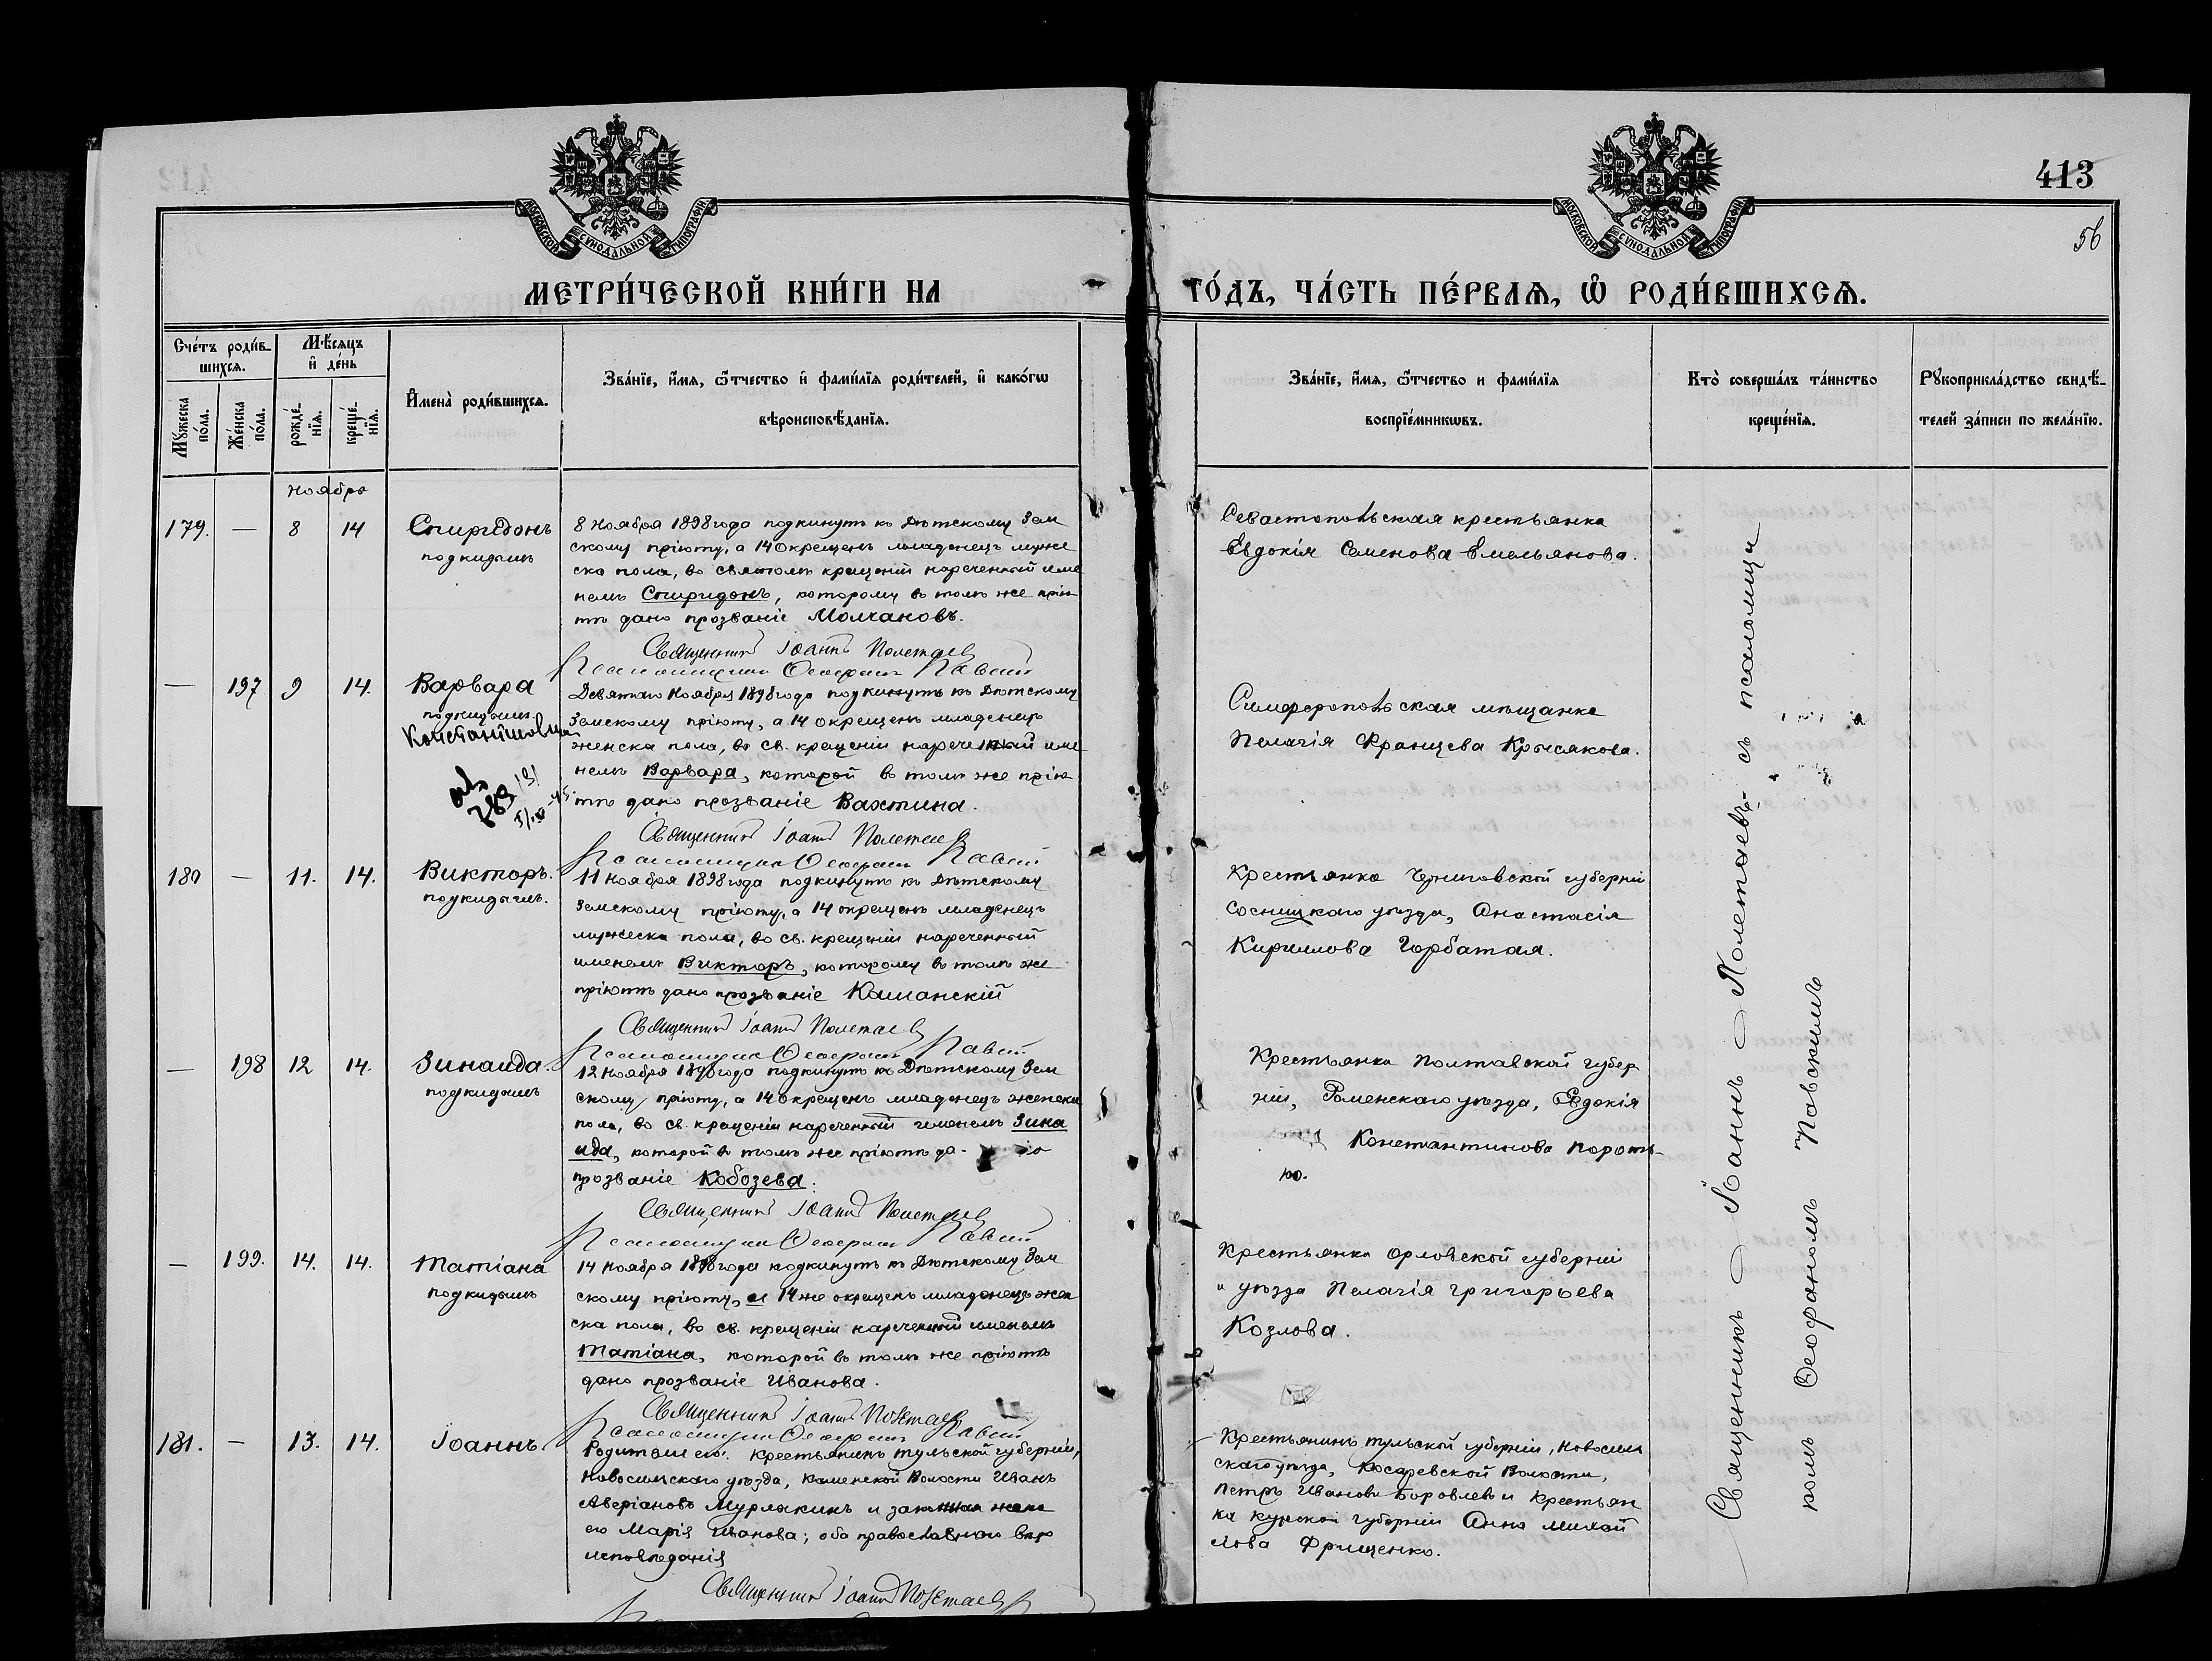 413
56
МОСКОВСКОЙ СУНОДАЛЬНОЙ ТИПОГРАФІИ
МОСКОВСКОЙ СУНОДАЛЬНОЙ ТИПОГРАФІИ
МЕТРИ́ЧЕСКОЙ КНИ́ГИ НА
ГО́ДЪ, ЧА́СТЬ ПЕ́РВАѦ, Ѡ҆ РОДИ́ВШИХСѦ.
Сче́тъ роди́в-
шихсѧ.
Мѣ́сѧцъ
и҆ де́нь
Мꙋ́жеска
по́ла.
Же́нска
по́ла.
рожде́-
нїѧ.
креще́-
нїѧ.
И҆мена̀ роди́вшихсѧ.
Зва́нїе, и҆́мѧ, ѻ҆́тчество и҆ фами́лїѧ роди́телей, и҆ како́гѡ
вѣроисповѣ́данїѧ.
Зва́нїе, и҆́мѧ, ѻ҆́тчество и фами́лїѧ
воспрїе́мникѡвъ.
Кто̀ соверша́лъ та́инство
креще́нїѧ.
Рꙋкоприкла́дство свидѣ́-
телей за́писи по жела́нїю.
ноябрь
179. — 8 14
Спиридонъ
подкидышъ
8 Ноября 1898 года подкинутъ къ Дѣтскому Зем
скому пріюту, а 14 окрещенъ младенецъ муже
ска пола, во святомъ крещеніи нареченный име
немъ Спиридонъ, которому въ томъ же прію
тѣ дано прозваніе Молчановъ.
Священникъ Іоаннъ Полетаевъ
Псаломщикъ Ѳеофанъ Павскій
Севастопольская крестьянка
Евдокія Семенова Емельянова.
— 197 9 14.
Варвара
подкидышъ
Константиновна
Девятаго Ноября 1898 года подкинутъ къ Дѣтскому
Земскому пріюту, а 14 окрещенъ младенецъ
женска пола, во св. крещеніи нареченный име
немъ Варвара, которой въ томъ же прію
тѣ дано прозваніе Вахтина.
Священникъ Іоаннъ Полетаевъ
Псаломщикъ Ѳеофанъ Павскій
Симферопольская мѣщанка
Пелагія Францева Крысакова.
180 — 11. 14.
Викторъ.
подкидышъ.
11 Ноября 1898 года подкинутъ къ Дѣтскому
Земскому пріюту, а 14 окрещенъ младенецъ
мужеска пола, во св. крещеніи нареченный
именемъ Викторъ, которому въ томъ же
пріютѣ дано прозваніе Кашанскій
Священникъ Іоаннъ Полетаевъ
Псаломщикъ Ѳеофанъ Павскій
Крестьянка Черниговской губерніи
Сосницкаго уѣзда, Анастасія
Кириллова Горбатая.
— 198 12 14.
Зинаида.
подкидышъ
12 Ноября 1898 года подкинутъ къ Дѣтскому Зем
скому пріюту, а 14 окрещенъ младенецъ женска
пола, во св. крещеніи нареченный именемъ Зина
ида, которой въ томъ же пріютѣ да-но
прозваніе Кобозева.
Священникъ Іоаннъ Полетаевъ
Псаломщикъ Ѳеофанъ Павскій
Крестьянка Полтавской губер
ніи, Роменскаго уѣзда, Евдокія
Константинова Пороть-
ко.
— 199. 14. 14.
Татіана
подкидышъ
14 Ноября 1898 года подкинутъ къ Дѣтскому Зем
скому пріюту, а 14 же окрещенъ младенецъ жен
ска пола, во св. крещеніи нареченный именемъ
Татіана, которой въ томъ же пріютѣ
дано прозваніе Иванова.
Священникъ Іоаннъ Полетаевъ
Псаломщикъ Ѳеофанъ Павскій
Крестьянка Орловской губерніи
и уѣзда Пелагія Григорьева
Козлова.
181. — 13. 14.
Іоаннъ.
Родители его: Крестьянинъ Тульской губерніи,
Новосильскаго уѣзда, Каменской Волости Иванъ
Аверіановъ Мурлякинъ и законная жена
его Марія Иванова; оба православнаго вѣро
исповѣданія
Священникъ Іоаннъ Полетаевъ
Крестьянинъ Тульской губерніи, Новосиль
скаго уѣзда, Косаревской Волости,
Петръ Ивановъ Боровлевъ и Крестьян
ка Курской губерніи Анна Михай
лова Фрищенко.
Священникъ Іоаннъ Полетаевъ съ псаломщи
комъ Ѳеофаномъ Павскимъ